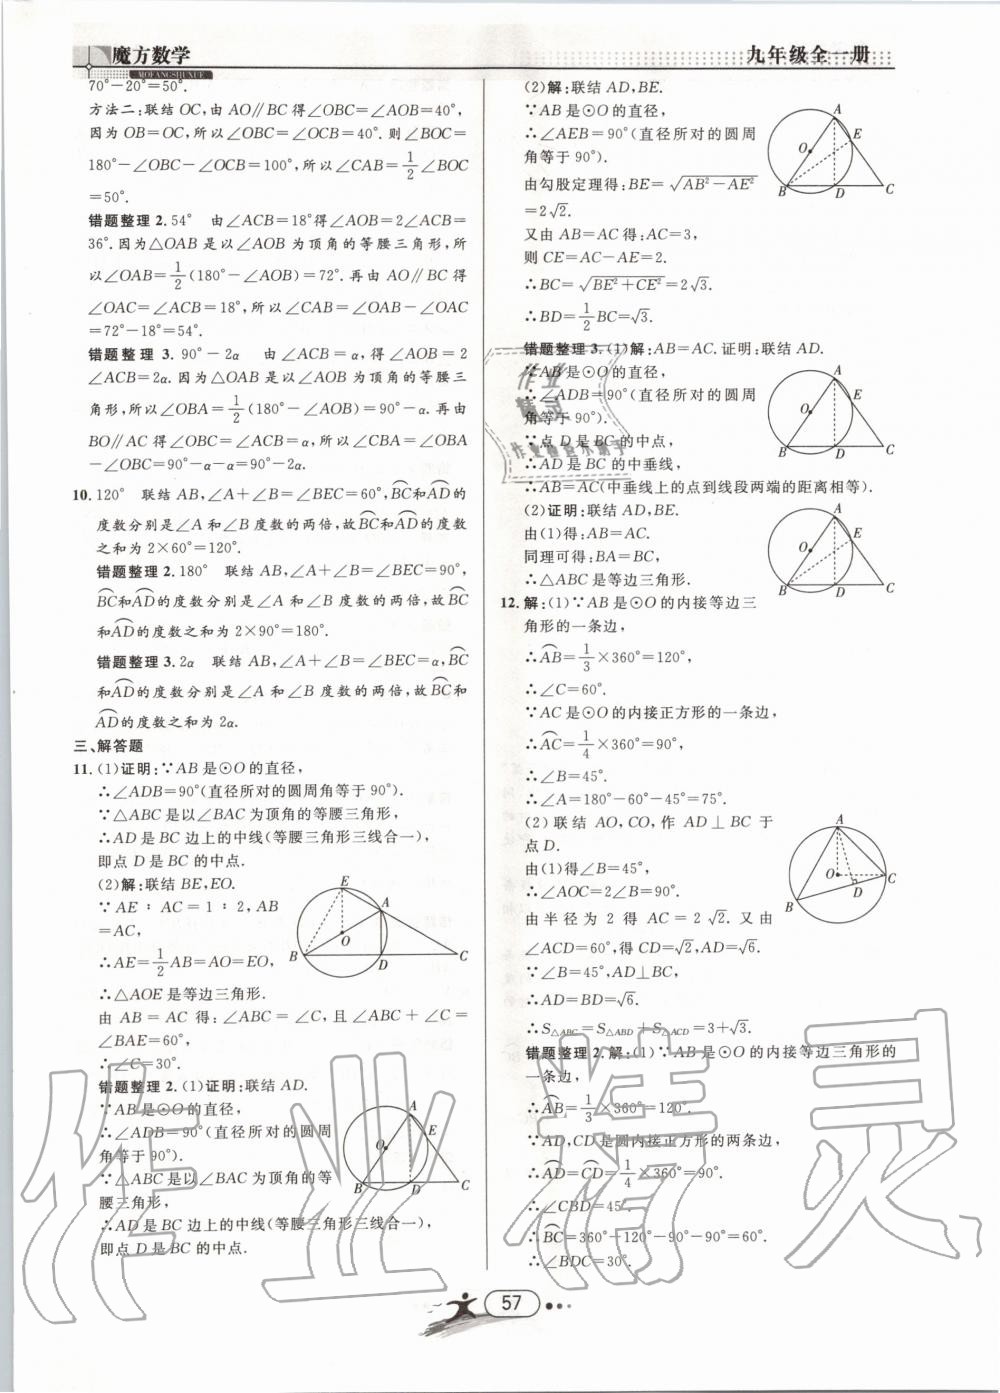 魔方数学
MOFANGSHUXUE
九年级全一册
70°-20°=50°.
方法二:联结OC,由AO∥BC得∠OBC=∠AOB=40°,
因为OB=OC,所以∠OBC=∠OCB=40°.则∠BOC=
180°-∠OBC-∠OCB=100°,所以∠CAB=1/2∠BOC
=50°.
错题整理2.54° 由∠ACB=18°得∠AOB=2∠ACB=
36°.因为△OAB是以∠AOB为顶角的等腰三角形,所
以∠OAB=1/2(180°-∠AOB)=72°.再由AO∥BC得
∠OAC=∠ACB=18°,所以∠CAB=∠OAB-∠OAC
=72°-18°=54°.
错题整理3.90°-2α 由∠ACB=α,得∠AOB=2
∠ACB=2α.因为△OAB是以∠AOB为顶角的等腰三
角形,所以∠OBA=1/2(180°-∠AOB)=90°-α.再由
BO∥AC得∠OBC=∠ACB=α,所以∠CBA=∠OBA
-∠OBC=90°-α-α=90°-2α.
10.120° 联结AB,∠A+∠B=∠BEC=60°,⌒BC和⌒AD的
度数分别是∠A和∠B度数的两倍,故⌒BC和⌒AD的度数
之和为2×60°=120°.
错题整理2.180° 联结AB,∠A+∠B=∠BEC=90°,
⌒BC和⌒AD的度数分别是∠A和∠B度数的两倍,故⌒BC
和⌒AD的度数之和为2×90°=180°.
错题整理3.2α 联结AB,∠A+∠B=∠BEC=α,⌒BC
和⌒AD的度数分别是∠A和∠B度数的两倍,故⌒BC和
⌒AD的度数之和为2α.
三、解答题
11.(1)证明:∵AB是⊙O的直径,
∴∠ADB=90°(直径所对的圆周角等于90°).
∵△ABC是以∠BAC为顶角的等腰三角形,
∴AD是BC边上的中线(等腰三角形三线合一),
即点D是BC的中点.
(2)解:联结BE,EO.
∵AE∶AC=1∶2,AB
=AC,
∴AE=1/2AB=AO=EO,
∴△AOE是等边三角形.
由AB=AC得:∠ABC=∠C,且∠ABC+∠C=
∠BAE=60°,
∴∠C=30°.
E A O B D C
错题整理2.(1)证明:联结AD.
∵AB是⊙O的直径,
∴∠ADB=90°(直径所对的圆周
角等于90°).
∵△ABC是以∠BAC为顶角的等
腰三角形,
∴AD是BC边上的中线(等腰三角形三线合一),
即点D是BC的中点.
A E O B D C
(2)解:联结AD,BE.
∵AB是⊙O的直径,
∴∠AEB=90°(直径所对的圆周
角等于90°).
由勾股定理得:BE=√(AB²-AE²)
=2√2.
又由AB=AC得:AC=3,
则CE=AC-AE=2.
∴BC=√(BE²+CE²)=2√3.
∴BD=1/2BC=√3.
A E O B D C
错题整理3.(1)解:AB=AC.证明:联结AD.
∵AB是⊙O的直径,
∴∠ADB=90°(直径所对的圆周
角等于90°).
∵点D是BC的中点,
∴AD是BC的中垂线,
∴AB=AC(中垂线上的点到线段两端的距离相等).
A E O B D C
(2)证明:联结AD,BE.
由(1)得:AB=AC.
同理可得:BA=BC,
∴△ABC是等边三角形.
A E O B D C
12.解:(1)∵AB是⊙O的内接等边三
角形的一条边,
∴⌒AB=1/3×360°=120°,
∴∠C=60°.
∵AC是⊙O的内接正方形的一条边,
∴⌒AC=1/4×360°=90°,
∴∠B=45°.
∴∠A=180°-60°-45°=75°.
(2)联结AO,CO,作AD⊥BC于
点D.
由(1)得∠B=45°,
∴∠AOC=2∠B=90°.
由半径为2得AC=2√2.又由
∠ACD=60°,得CD=√2,AD=√6.
∵∠B=45°,AD⊥BC,
∴AD=BD=√6.
∴S△ABC=S△ABD+S△ACD=3+√3.
A O C D B
错题整理2.解:(1)∵AB是⊙O的内接等边三角形的
一条边,
∴⌒AB=1/3×360°=120°.
∵AD,CD是圆内接正方形的两条边,
∴⌒AD=⌒CD=1/4×360°=90°.
∴∠CBD=45°.
∴⌒BC=360°-120°-90°-90°=60°.
∴∠BDC=30°.
57
作业精灵
作业精灵
作业检查小助手